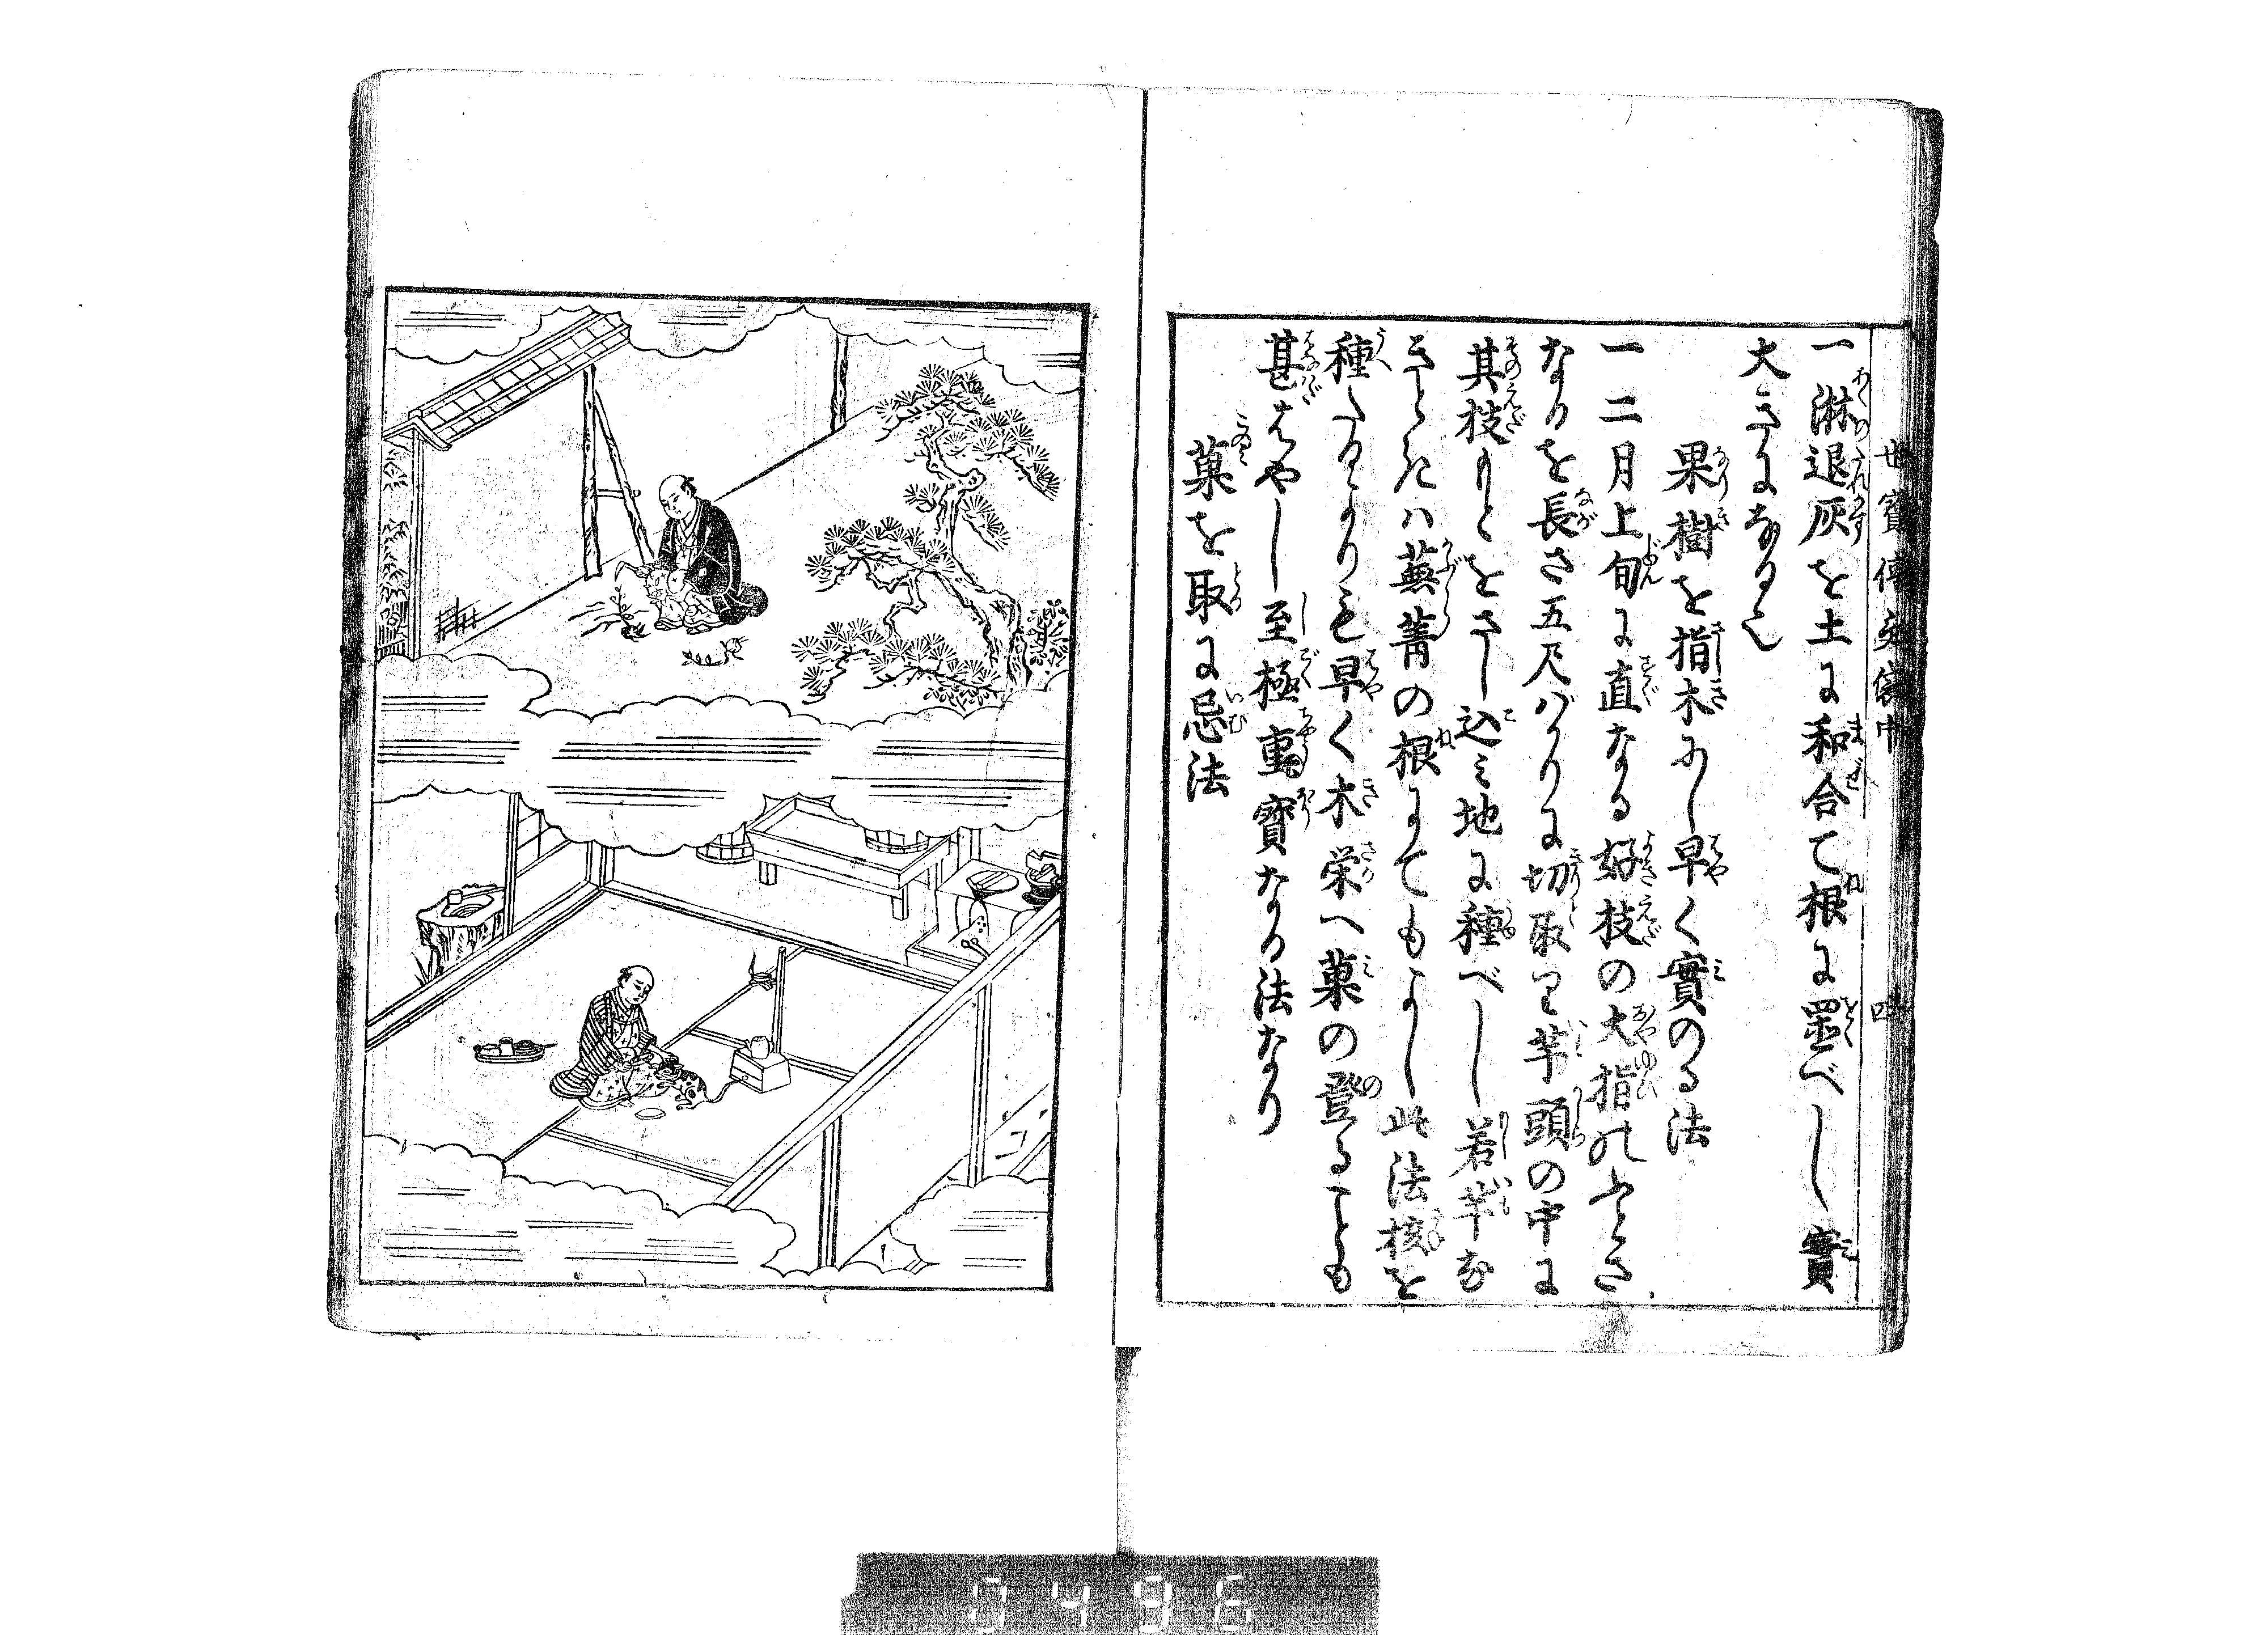 一淋退灰を土に和合て根に置べし實
大きになる也
果樹を指木にし早く實のる法
一二月上旬に直なる好枝の大指のふとさ
なるを長さ五尺ばかりに切取り芋頭の中に
其枝もとをさし込ミ地に種べし若芋な
きときハ蕪菁の根にてもよし此法核を
種たるよりも早く木栄へ菓の登ることも
甚はやし至極重寳なる法なり
菓を取に忌法
世寳傳授袋中
四
0496